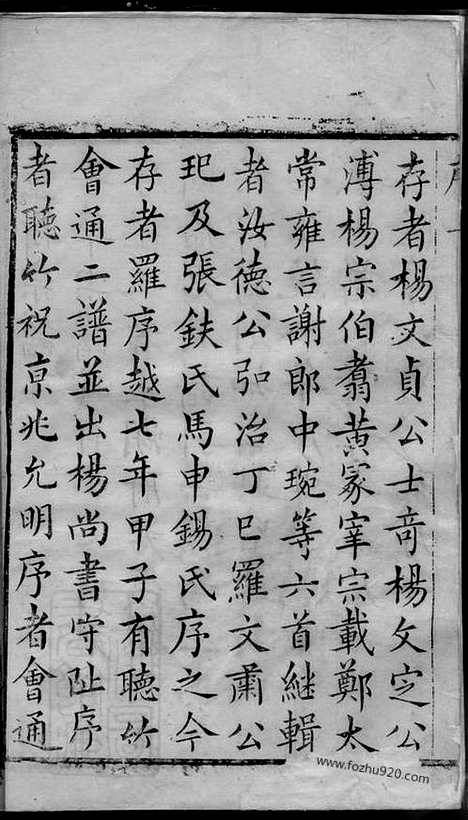 存者楊文貞公士竒楊文定公
溥楊宗伯翥黃冢宰宗載鄭太
常雍言謝郎中琬等六首継輯
者汝德公弘治丁巳羅文肅公
玘及張鈇氏馬申錫氏序之今
存者羅序越七年甲子有聽竹
會通二譜並出楊尚書守阯序
者聽竹祝京兆允明序者會通
www.fozhu920.com